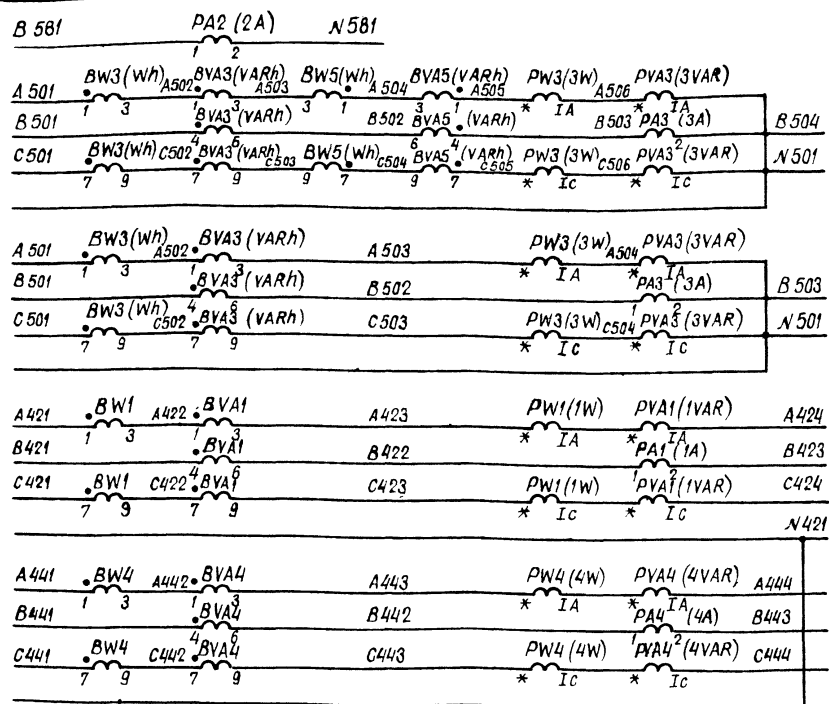 B 581 PA2 (2A) N581
1 2
BW3(Wh) A502 BVA3(VARh) A503 BW5(Wh) A504 BVA5(VARh) A505 PW3(3W) A506 PVA3(3VAR)
A501 1 3 1 3 3 1 3 1 * IA * IA
B501 BVA3(VARh) B502 BVA5 (VARh) B503 PA3 (3A) B504
4 6 6 4 1 2
C501 BW3(Wh) C502 BVA3(VARh) C503 BW5(Wh) C504 BVA5 (VARh) C505 PW3(3W) C506 PVA3(3VAR) N501
7 9 7 9 9 7 9 7 * Ic * Ic
A501 BW3(Wh) A502 BVA3(VARh) A503 PW3(3W) A504 PVA3(3VAR)
1 3 1 3 * IA * IA
B501 BVA3(VARh) B502 PA3 (3A) B503
4 6 1 2
C501 BW3(Wh) C502 BVA3 (VARh) C503 PW3(3W) C504 PVA3(3VAR) N501
7 9 7 9 * Ic * Ic
A421 BW1 A422 BVA1 A423 PW1(1W) PVA1(1VAR) A424
1 3 1 3 * IA * IA
B421 BVA1 B422 PA1 (1A) B423
4 6 1 2
C421 BW1 C422 BVA1 C423 PW1(1W) PVA1(1VAR) C424
7 9 7 9 * Ic * Ic
N421
A441 BW4 A442 BVA4 A443 PW4(4W) PVA4 (4VAR) A444
1 3 1 3 * IA * IA
B441 BVA4 B442 PA4 (4A) B443
4 6 1 2
C441 BW4 C442 BVA4 C443 PW4(4W) PVA4 (4VAR) C444
7 9 7 9 * Ic * Ic